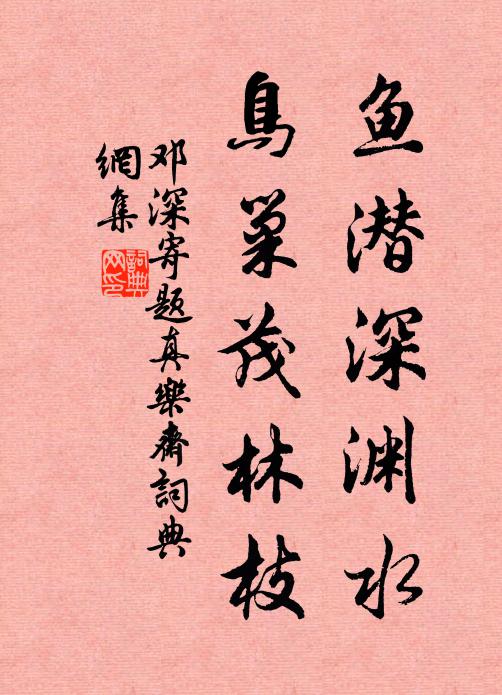 鱼潜深渊水
鳥巢茂林枝
邓深寄题真樂齋詞典
網集
詞典
网印